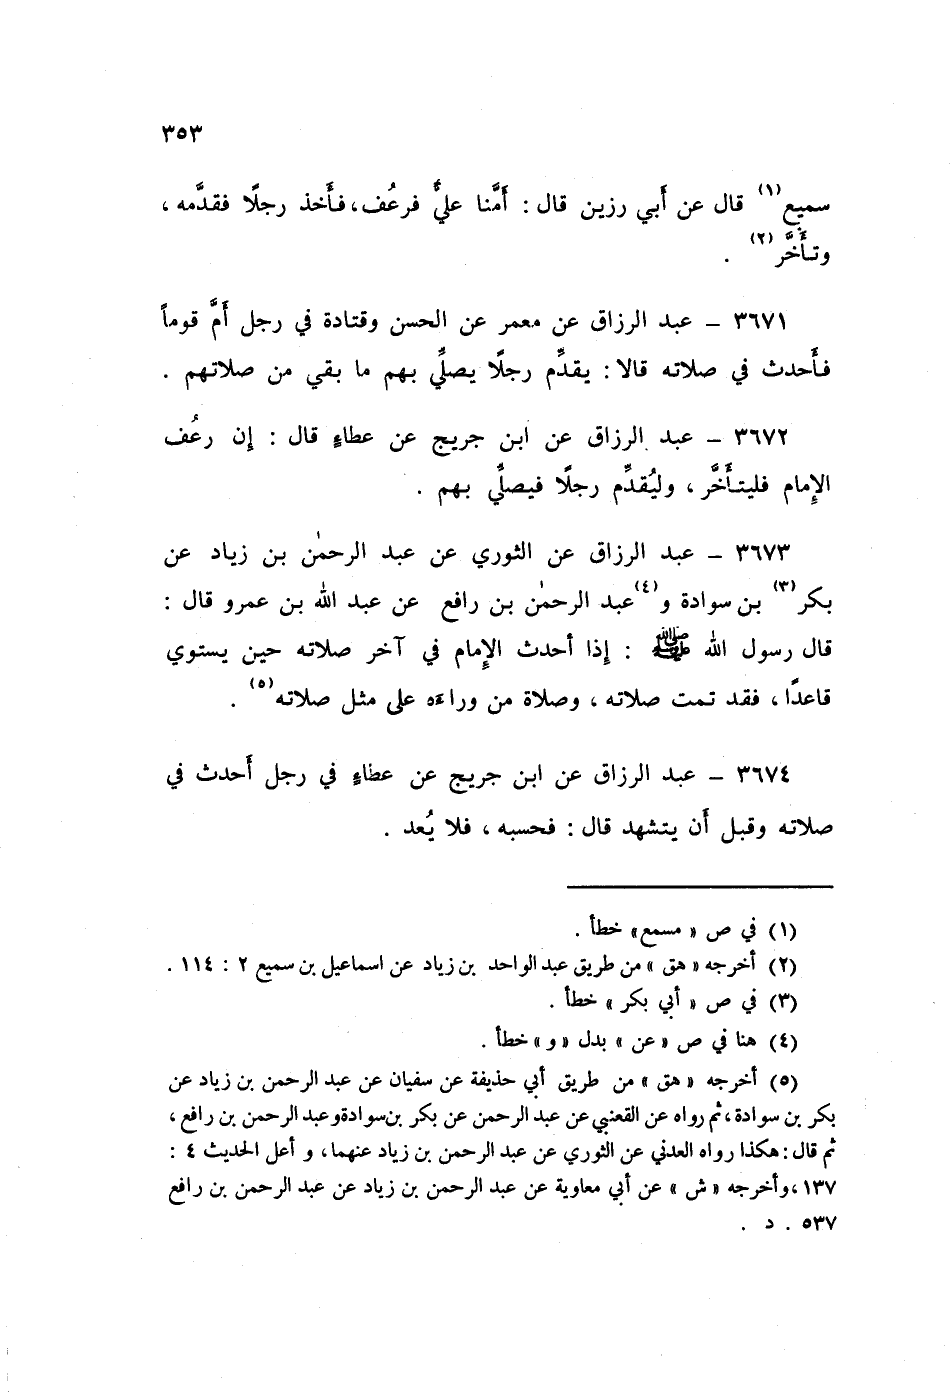 ٣٥٣
سميع(١) قال عن أَبي رزين قال : أَمَّنا عليٌّ فرعُف، فأَخذ رجلًا فقدَّمه ،
وتأَخَّر(٢) .
٣٦٧١ – عبد الرزاق عن معمر عن الحسن وقتادة في رجل أَمَّ قوماً
فأَحدث في صلاته قالا : يقدِّم رجلًا يصلِّي بهم ما بقي من صلاتهم .
٣٦٧٢ – عبد الرزاق عن ابن جريج عن عطاءٍ قال : إن رعُف
الإِمام فليتأَخَّر ، وليُقدِّم رجلًا فيصلِّي بهم .
٣٦٧٣ – عبد الرزاق عن الثوري عن عبد الرحمٰن بن زياد عن
بكر(٣) بن سوادة و(٤)عبد الرحمٰن بن رافع عن عبد الله بن عمرو قال :
قال رسول الله ﷺ : إذا أحدث الإِمام في آخر صلاته حين يستوي
قاعدًا ، فقد تمت صلاته ، وصلاة من وراءه على مثل صلاته(٥) .
٣٦٧٤ – عبد الرزاق عن ابن جريج عن عطاءٍ في رجل أَحدث في
صلاته وقبل أَن يتشهد قال : فحسبه ، فلا يُعد .
(١) في ص « مسمع» خطأ .
(٢) أخرجه « هق » من طريق عبد الواحد بن زياد عن اسماعيل بن سميع ٢ : ١١٤ .
(٣) في ص « أبي بكر » خطأ .
(٤) هنا في ص «عن » بدل «و» خطأ .
(٥) أخرجه « هق » من طريق أبي حذيفة عن سفيان عن عبد الرحمن بن زياد عن
بكر بن سوادة ، ثم رواه عن القعنبي عن عبد الرحمن عن بكر بن سوادة وعبد الرحمن بن رافع ،
ثم قال : هكذا رواه العدني عن الثوري عن عبد الرحمن بن زياد عنهما، و أعل الحديث ٤ :
١٣٧ ،وأخرجه « ش » عن أبي معاوية عن عبد الرحمن بن زياد عن عبد الرحمن بن رافع
٥٣٧ . د .